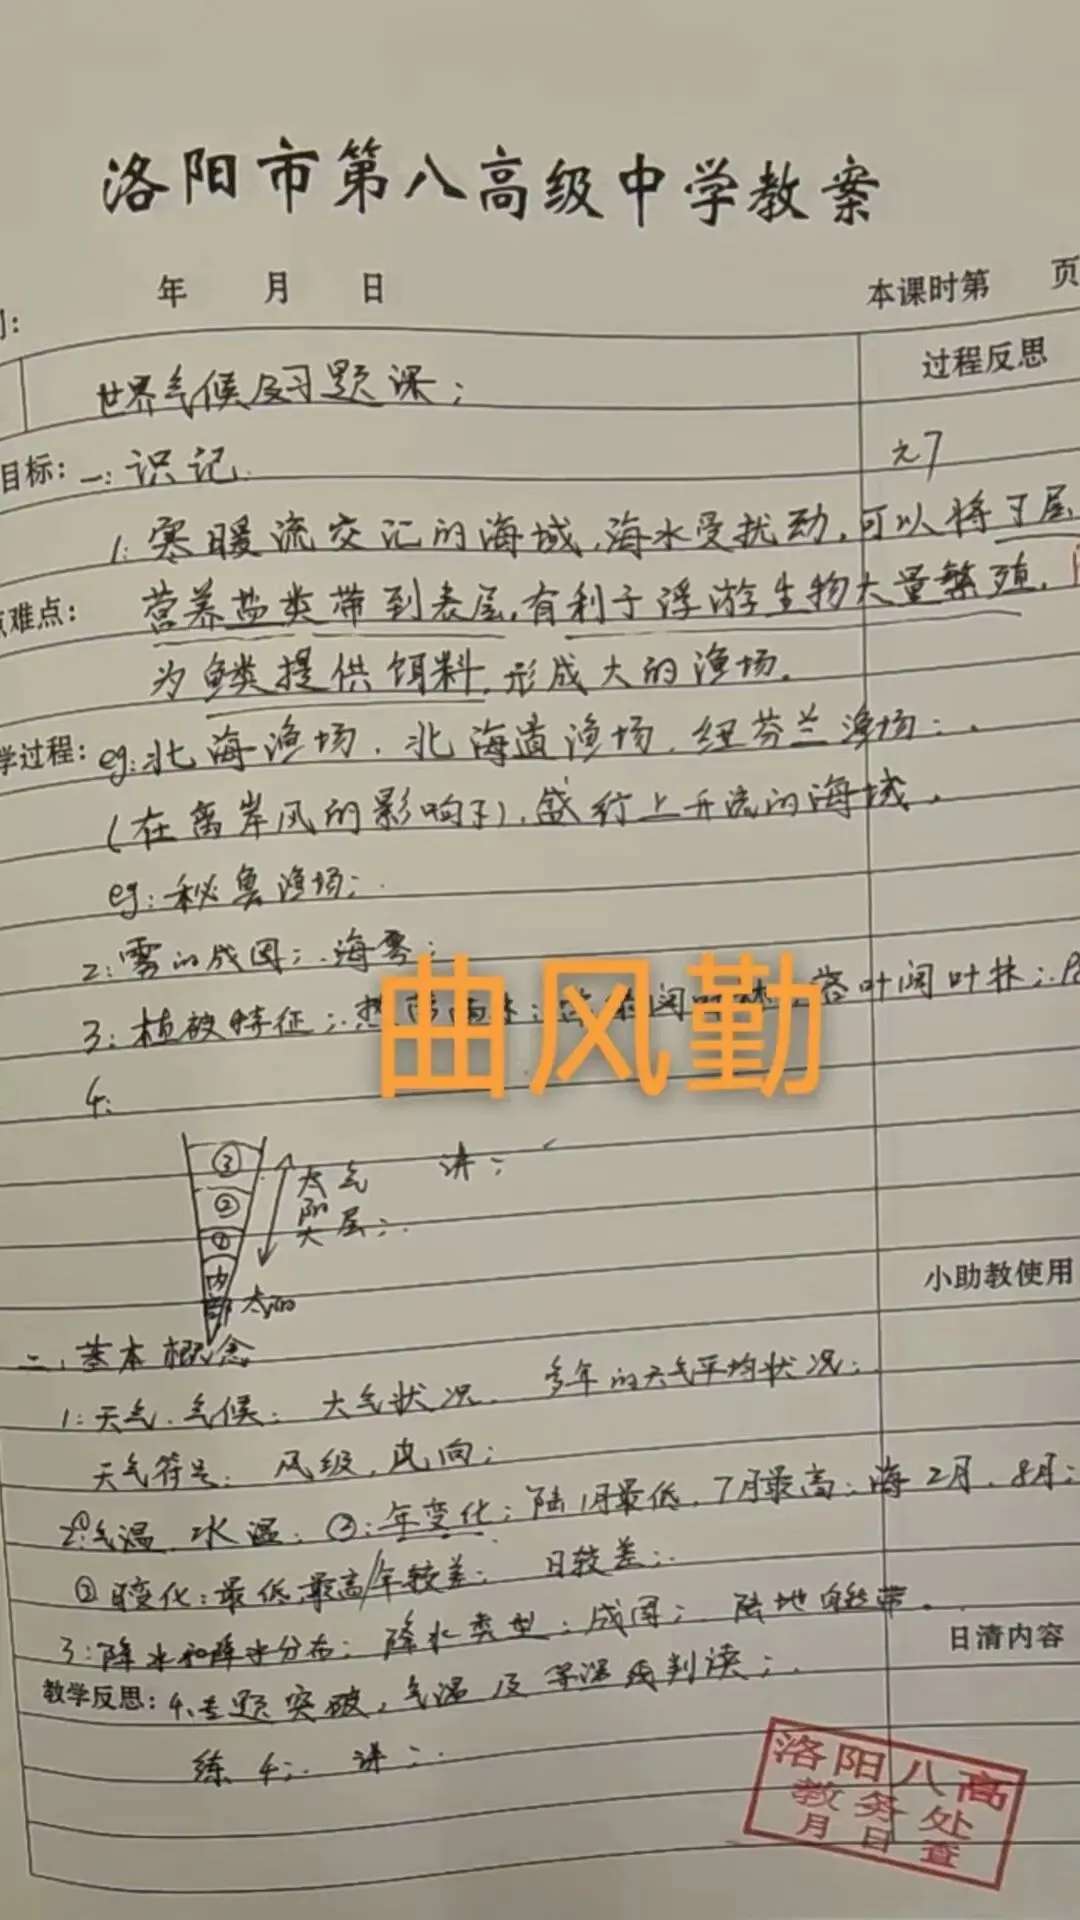 洛阳市第八高级中学教案
年 月 日
本课时第 页
世界气候及习题课;
过程反思
目标: 一:识记.
1: 寒暖流交汇的海域,海水受扰动,可以将下层
点难点: 营养盐类带到表层,有利于浮游生物大量繁殖,
为鱼类提供饵料,形成大的渔场.
学过程: eg:北海渔场,北海道渔场,纽芬兰渔场:.
(在离岸风的影响下),盛行上升流的海域,
eg:秘鲁渔场;.
2:雾的成因;.海雾;
3:植被特征;. 落叶阔叶林;.
4:
③
②
①
内部
大气
层;.
讲;
小助教使用
曲风勤
二、基本概念
1:天气.气候: 大气状况. 多年的天气平均状况;.
天气符号: 风级,风向;
2:①气温.水温: ②:年变化:陆1月最低,7月最高:海2月.8月;
③日变化:最低.最高/年较差; 日较差;.
3:降水和降水分布: 降水类型;成因;.陆地自然带.
日清内容
教学反思: 4.专题突破,气温及等温线判读;.
练4;. 讲;.
洛阳八高
教务处
月 日 查